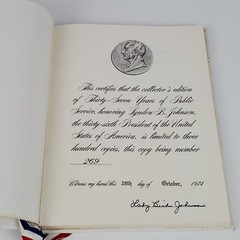 This certifies that the collector's edition
of Thirty-Seven Years of Public
Service, honoring Lyndon B. Johnson,
the thirty-sixth President of the United
States of America, is limited to three
hundred copies, this copy being number
269
Witness my hand this 28th day of October, 1974
Lady Bird Johnson